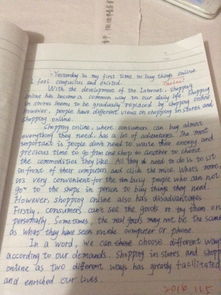 Yesterday is my first time to buy things online
I feel
and excited.
With the development of the Internet, shopping
online has become a common way in our daily life. Shopping
in stores seems to be gradually replaced by shopping online
However, people have different views on shopping in stores and
shopping online.
Shopping online, where consumers can buy almost
everything they need, has a lot of advantages. The most
important is people don't need to waste their energy and
precious time to go from one shop to another to choose
the commodities they like. All they need to do is to sit
in front of their computers and click the mice. What's more,
it's very convenient for the busy people who can not
go to the shops in person to buy things they need.
However, shopping online also has disadvantages.
Firstly, consumers can't see the goods or try them on
personally. Sometimes, the real goods may not be the same
as what they have seen on the computer or phone.
In a word, we can choose different ways
according to our demands. Shopping in stores and shopping
online as two different ways has greatly facilitated
and enriched our lives.